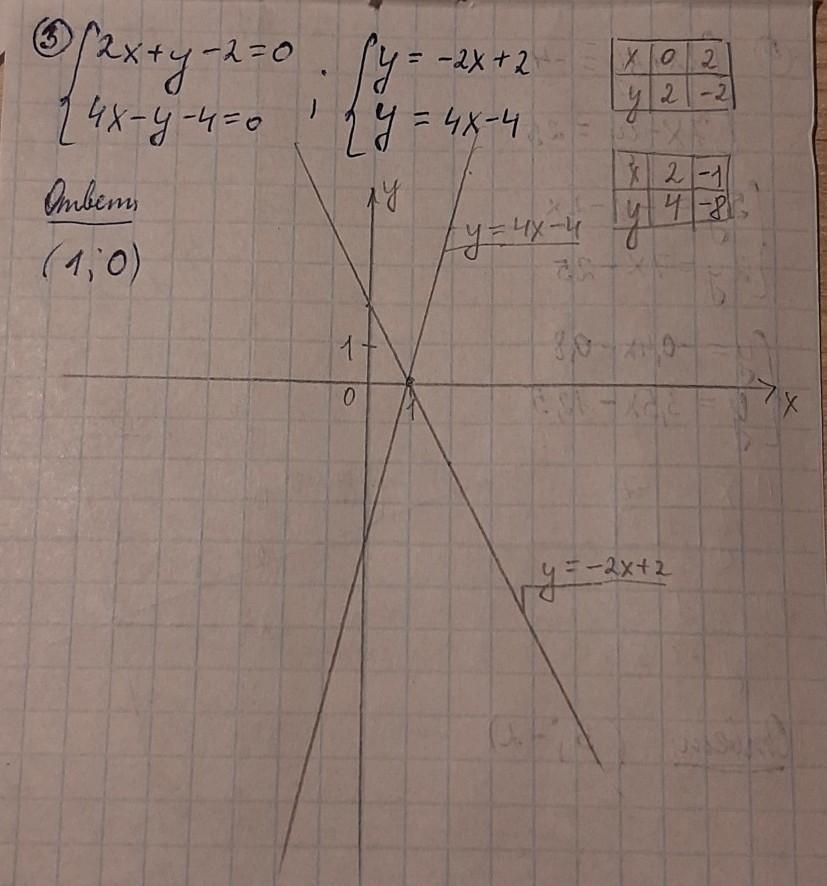 ③ { 2x+y-2=0
4x-y-4=0 ; { y = -2x+2
y = 4x-4
x 0 2
y 2 -2
x 2 -1
y 4 -8
Ответ
(1; 0)
y
y=4x-4
1
0
1
x
y=-2x+2